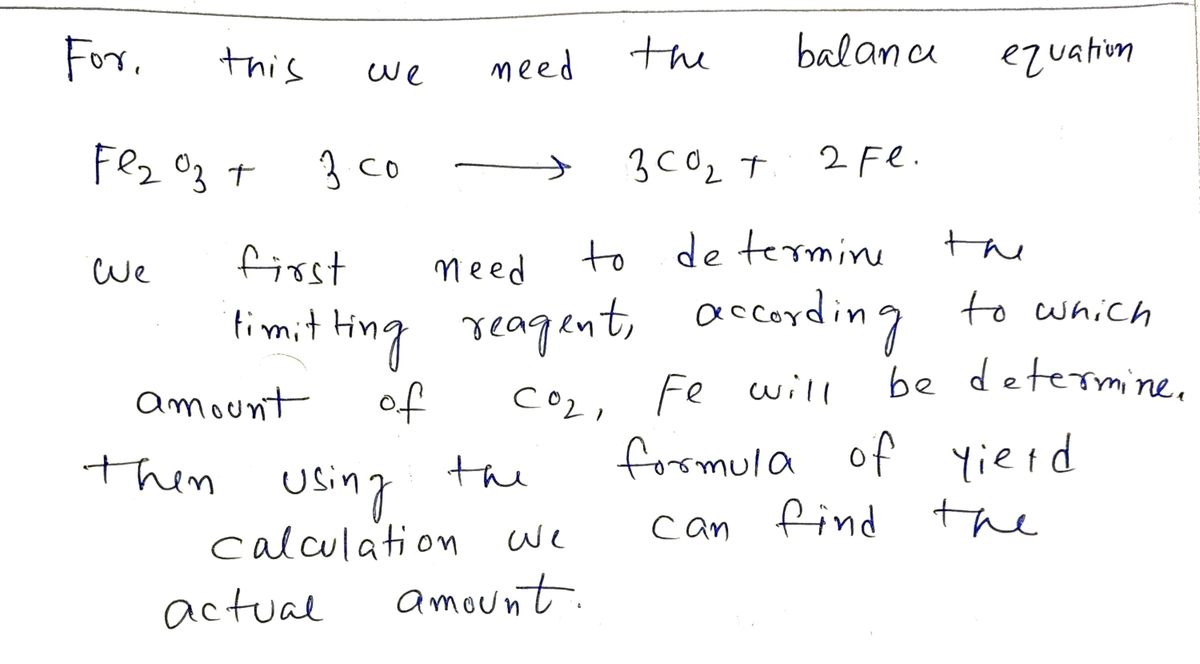 For, this we need the balance equation
Fe2O3 + 3CO → 3CO2 + 2Fe.
We first need to determine the
limitting reagent, according to which
amount of CO2, Fe will be determine.
then using the formula of yield
calculation we can find the
actual amount.